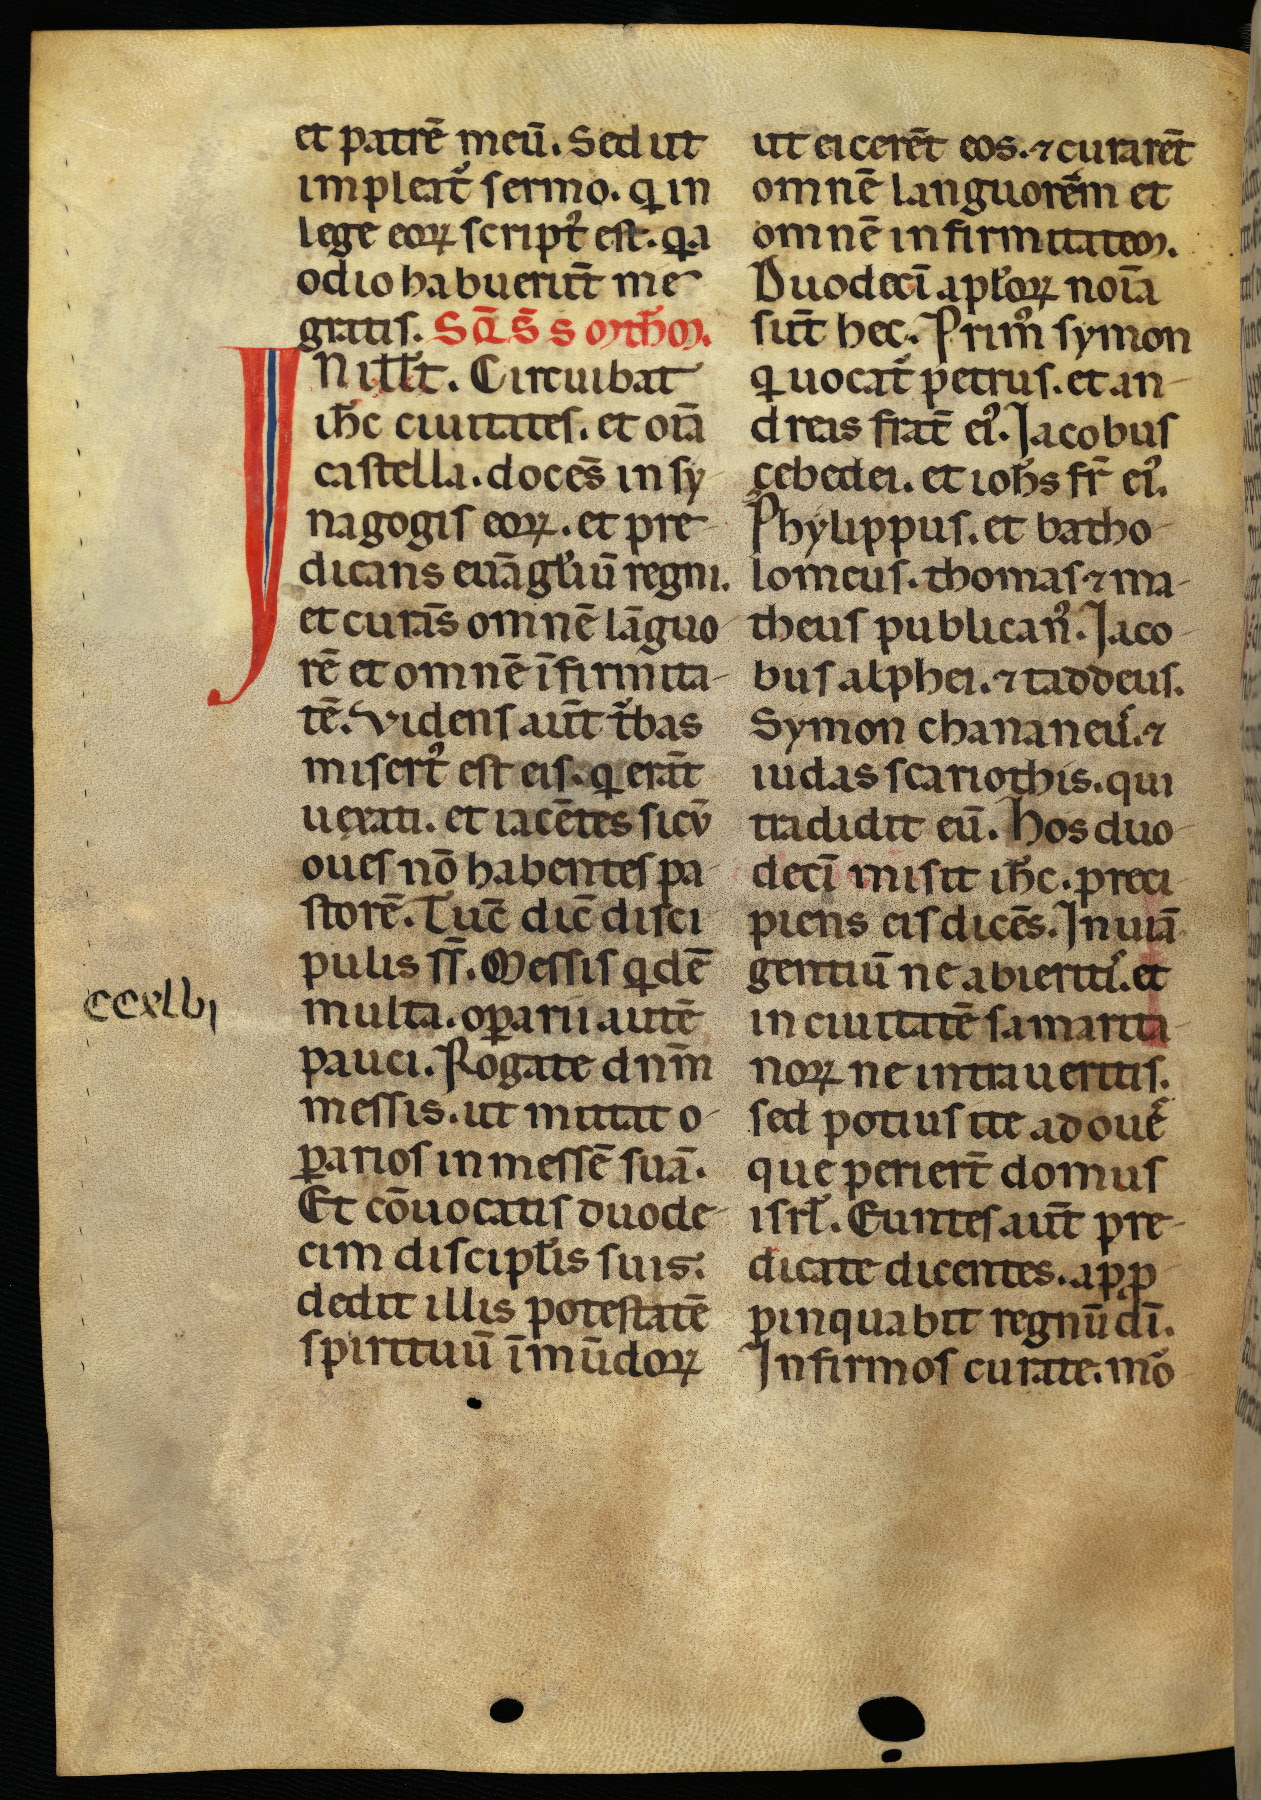 et patrē meū. Sed ut
impleat᷑ sermo. q̄ in
lege eoꝝ script᷒ est. qa
odio habuerūt me
gratis. SQ̄ S̄ S mt̄hm.
IN illt̄. Circuibat
ih̄c ciuitates. et oīa
castella. docēs in sy
nagogis eoꝝ. et pre
dicans euāgl̄iū regni.
et curās omnē lāguo
rē et omnē īfirmita-
tē. Videns aūt t᷑bas
misert᷒ est eis. q̄ erāt
uexati. et iacētes sicv̄
oues nō habentes pa
storē. Tūc dic̄ disci
pulis ss̄. Messis qdē
multa. oꝑarii autē
pauci. Rogate dn̄m
messis. ut mittit o-
ꝑarios in messē suā.
Et cōuocatis duode-
cim discipl̄is suis.
dedit illis potestatē
spirituū īmūdoꝝ
ccxlvi
ut eicerēt eos. ⁊ curarēt
omnē languorēm et
omnē infirmitatem.
Duodecī apl̄oꝝ noīa
sūt hec. Prim᷒ symon
q uocat᷑ petrus. et an-
dreas frat̄ ei᷒. Jacobus
cebedei. et ioh̄s fr̄ ei᷒.
Phylippus. et batho-
lomeus. thomas ⁊ ma-
theus publican᷒. Jaco-
bus alphei. ⁊ taddeus.
Symon chananeu᷒. ⁊
iudas scariothis. qui
tradidit eū. Hos duo-
decī misit ih̄c. preci-
piens eis dicēs. In uiā
gentiū ne abierit᷒. et
in ciuitatē samarita-
noꝝ ne intraueritis.
sed potius ite ad oue᷒
que periert̄ domus
isrl̄. Euntes aūt pre-
dicate dicentes. apꝓ-
pinquabit regnū dī.
Infirmos curate. mō